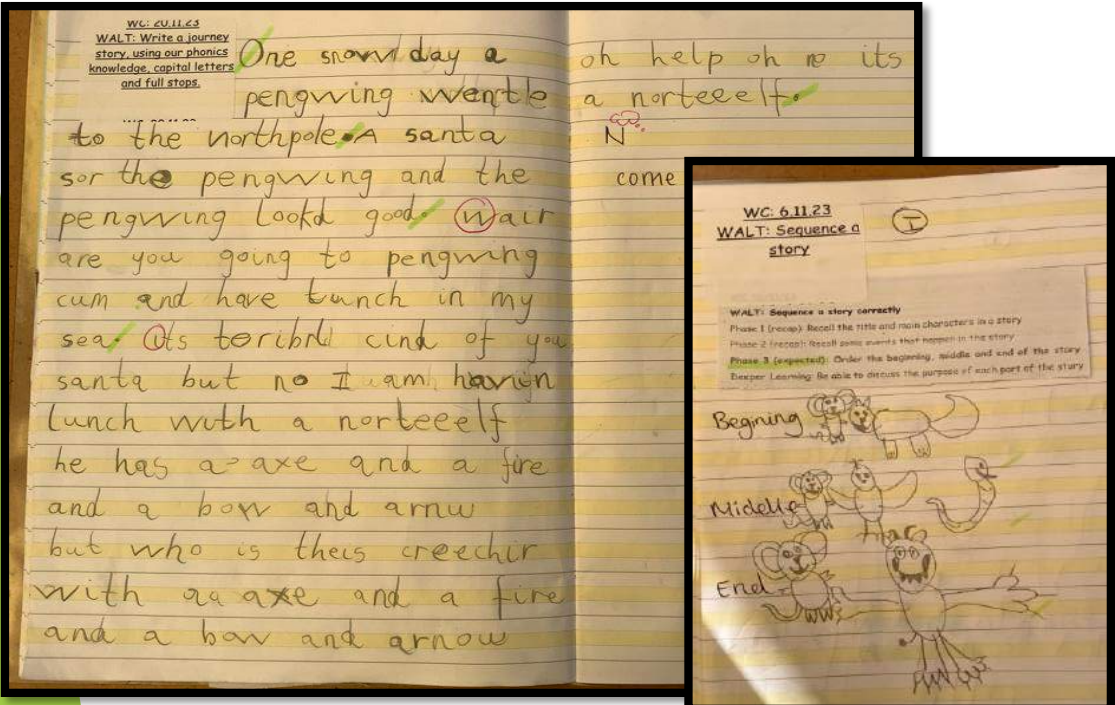 WC: 20.11.23
WALT: Write a journey
story, using our phonics
knowledge, capital letters
and full stops.
One snowl day a
pengwing wentle
to the northpole. A santa
sor the pengwing and the
pengwing lookd good. Wair
are you going to pengwing
cum and have lunch in my
sea. Its toribul cind of you
santa but no I am havin
lunch with a norteeelf
he has a axe and a fire
and a bow and arnw
but who is theis creechir
with aa axe and a fire
and a bow and arnow
oh help oh no its
a norteeelf.
N
come
WC: 6.11.23
WALT: Sequence a
story
I
WALT: Sequence a story correctly
Phase 1 (recap): Recall the title and main characters in a story
Phase 2 (recap): Recall some events that happen in the story
Phase 3 (expected): Order the beginning, middle and end of the story
Deeper Learning: Be able to discuss the purpose of each part of the story
Begining
Midelle
End